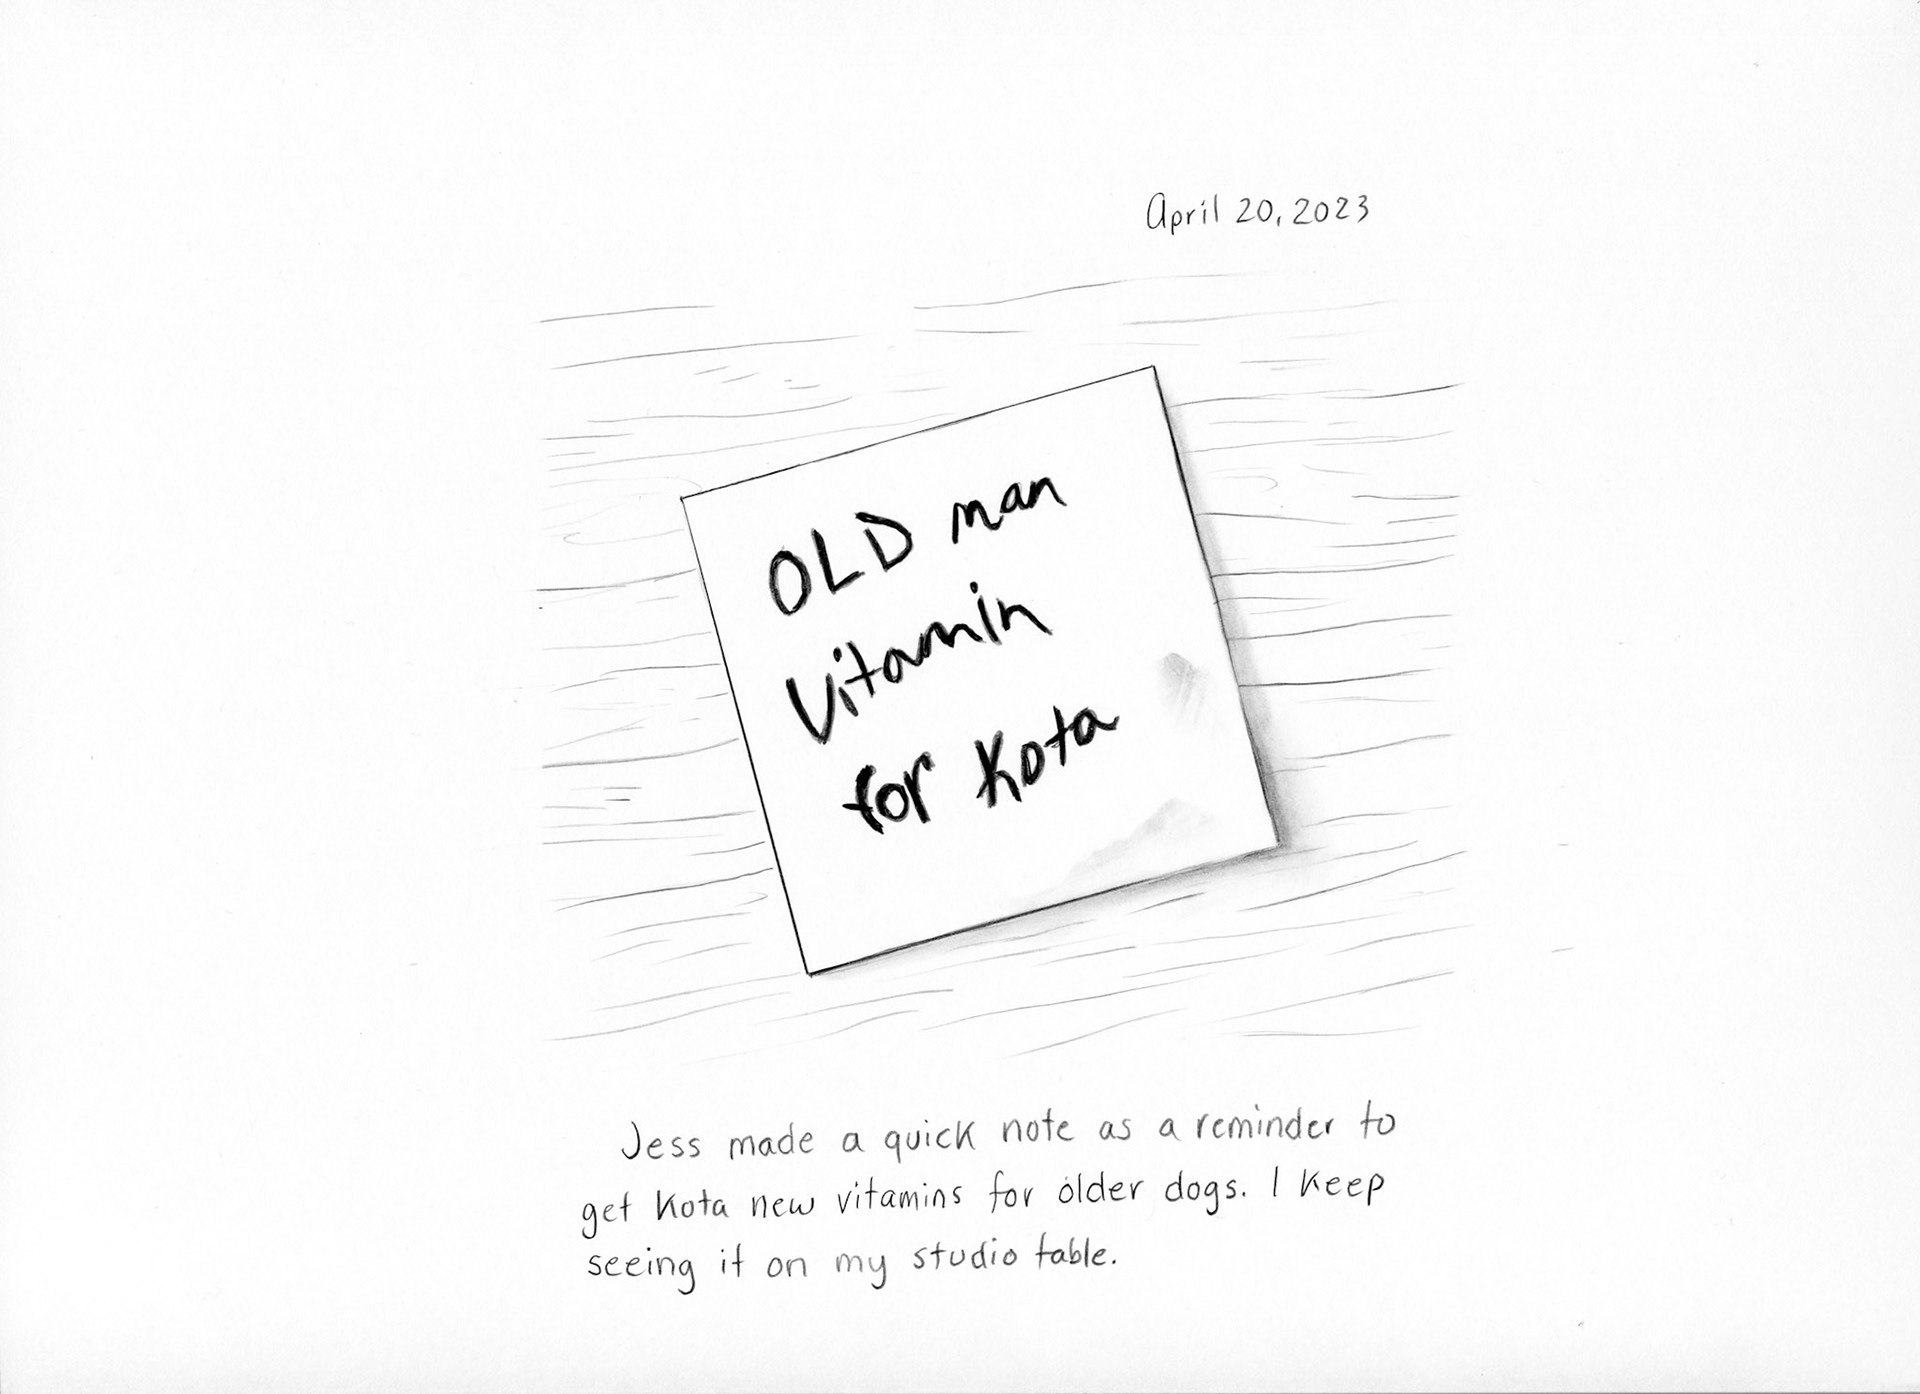 April 20, 2023
OLD man
vitamin
for Kota
Jess made a quick note as a reminder to
get Kota new vitamins for older dogs. I keep
seeing it on my studio table.